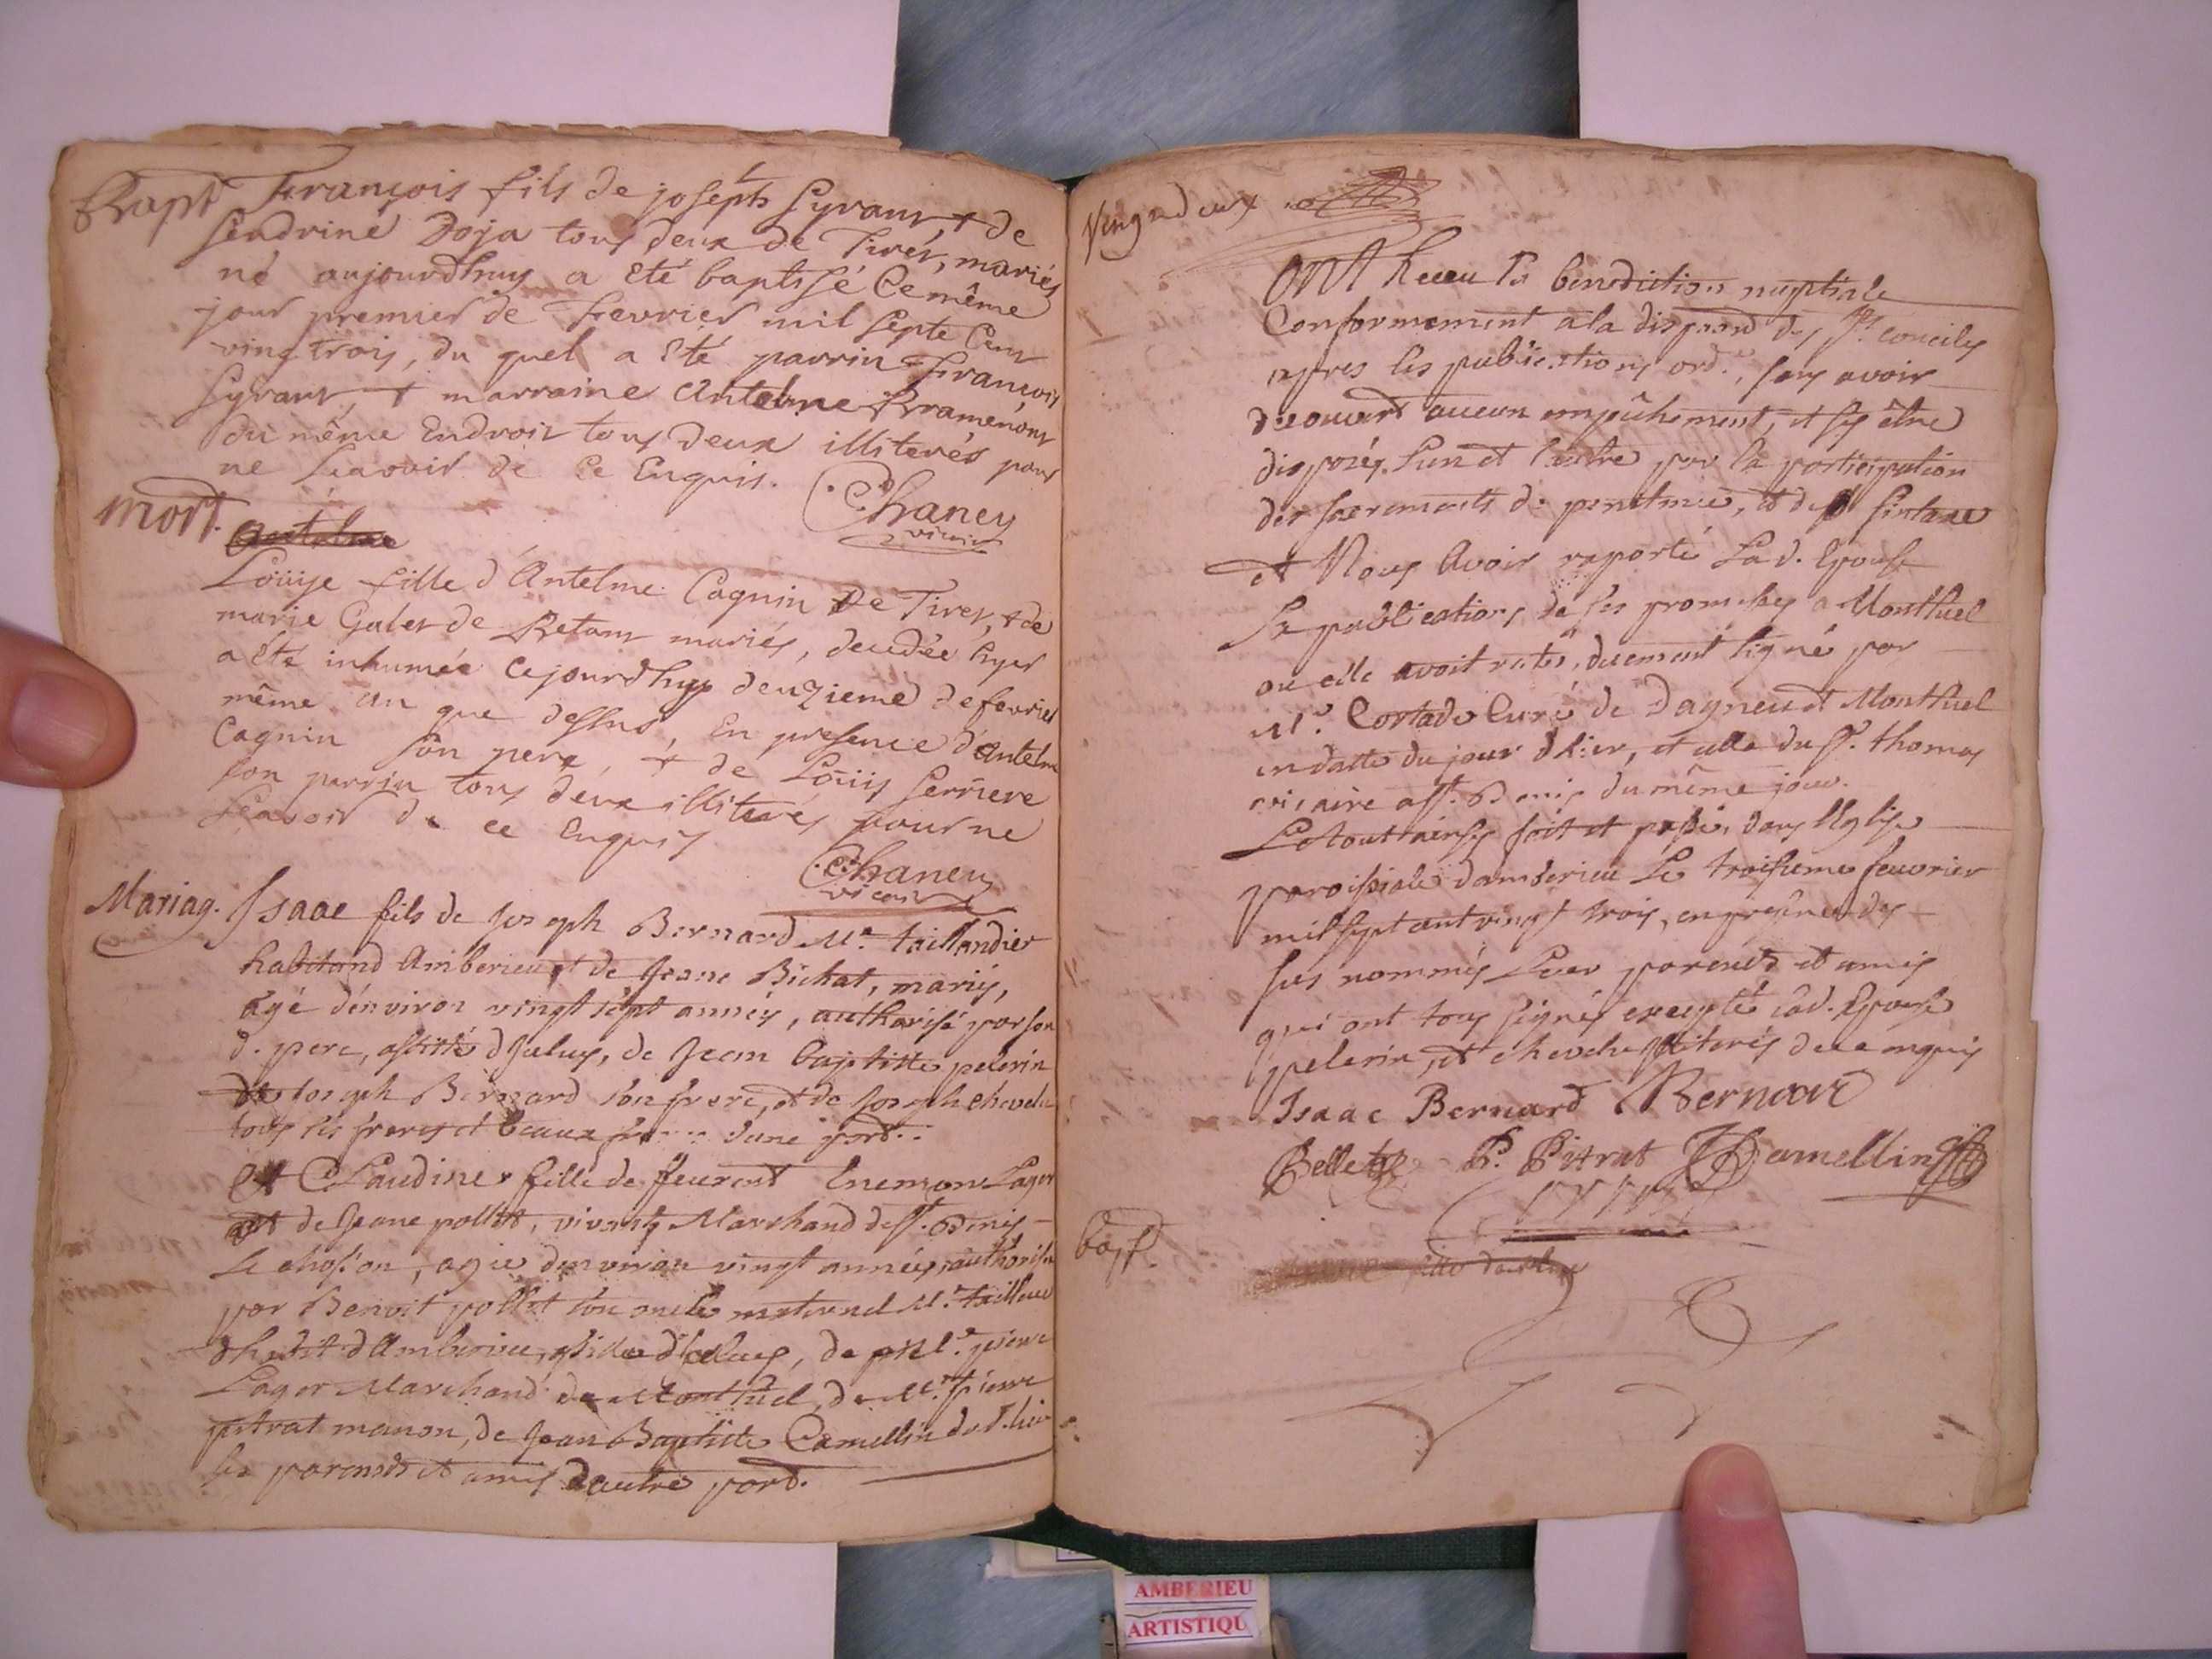 Bapt François fils de joseph Syrant, + de
Sendrine Dorja tous deux de Tiret, mariés
né aujourdhuy a eté baptisé Ce même
jour premier de Fevrier mil septe Cent
vingtrois, du quel a eté parrin François
Syrant, + marraine Antelme Bramenont
du même Endroit tous deux illiterés pour
ne sçavoir de Ce Enquis.
Chaney
vicaire
mort.
Loüise fille d'Antelme Cagnin De Tiret, + de
marie Galet de Betant mariés, decedée hyer
a eté inhumée Cejourdhuy deuzieme de fevrier
même an que dessus, En presence d'Antelme
Cagnin son pere, + de Loüis Serriere
son parrin tous deux illiterés pour ne
sçavoir de ce Enquis
Chaney
vicaire
Mariag. Isaac fils de Joseph Bernard Me. taillandier
habitand Amberieu, et de Jeane Bichat, mariés,
agé d'environ vingt sept années, authorisé par son
d. pere, assisté d'Iceluy, de Jean baptiste pelerin
de Joseph Bernard son frere, et de Joseph chevelu
tous ses freres et beaux freres dune part.
Et Claudine fille de feurent Enemon Lager
et de Jeane pollet, vivants Marchand de St. Denis
Le chosson, agée denviron vingt années, authorisée
par Benoit pollet son oncle maternel Me. tailleur
d'habit d'Amberieu, d'Iceluy, de Me. pierre
Lager Marchand de Montluel, de Me. pierre
pitrat manon, de Jean Baptiste Camellin dud. lieu
ses parents et amis dautre pard.
Vingt deux
Ont Receu la benediction nuptiale
Conformement a la des Sts. conciles
apres les publications ord., sans avoir
decouvert aucun empêchement, et ses être
disposés Lun et lautre par la participation
des sacrements de penitence, et de
et Nous Avoir raporté Lad. Epouse
La publication de ses promesses a Montluel
ou elle avoit restés, duement signé par
Mr. Cortade Curé de Dagneu et Montluel
en datte du jour d'hier, et celle du Sr. thomas
vicaire a St. Denis du même jour.
Le tout ainsy fait et passé dans l'Eglise
paroissiale damberieu Le troisieme feuvrier
mil sept cent vingt trois, en presence des
sus nommés Leur parents et amis
qui ont tous signés excepté lad. Epouse
pelerin, et chevelu illiterés de ce enquis
Isaac Bernard Bernard
Bellet P. Pitrat JB Camellin
bapt.
AMBERIEU
ARTISTIQU